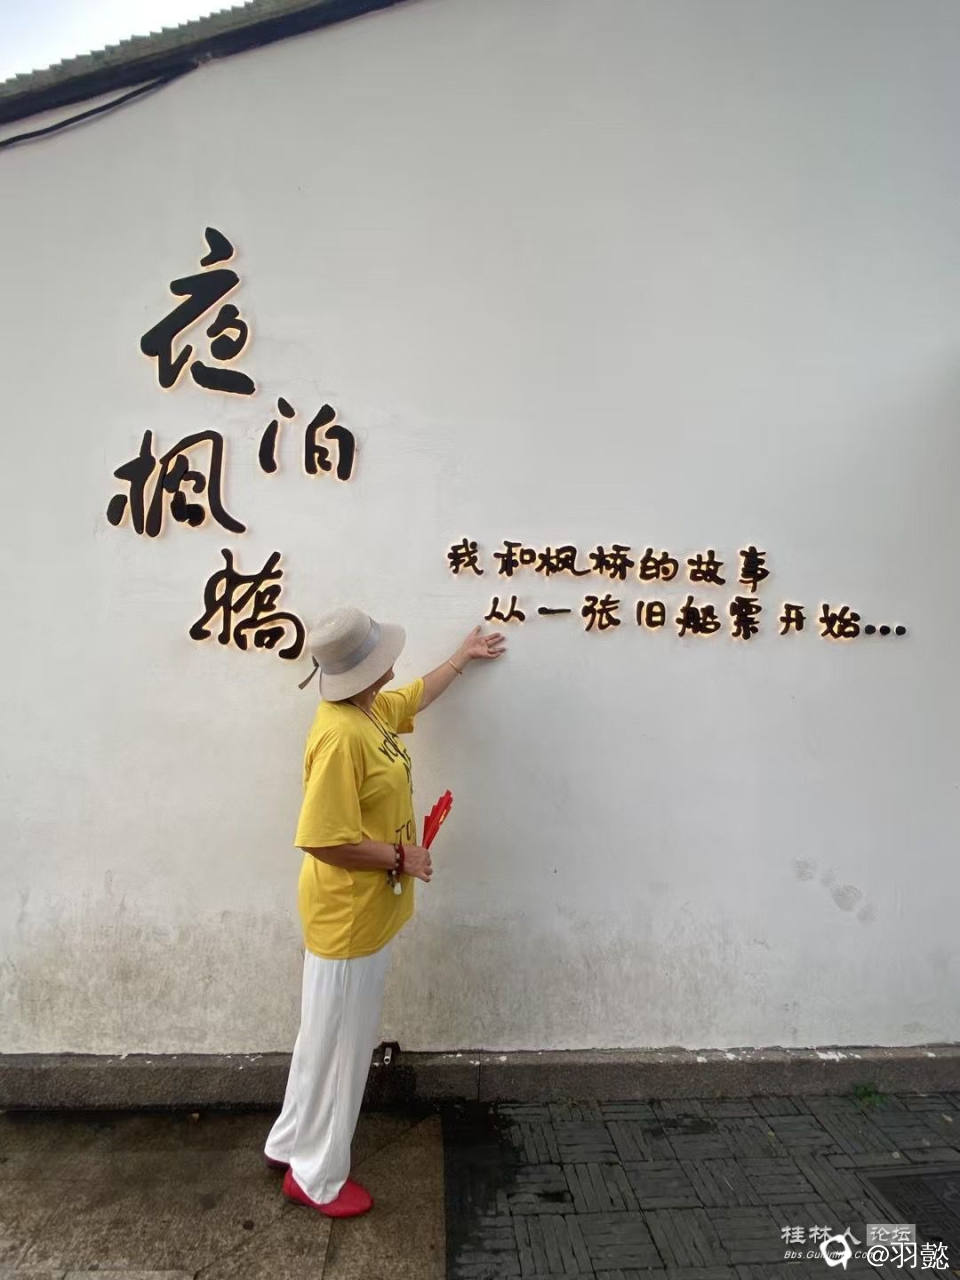 夜泊
枫橋
我和枫桥的故事
从一张旧船票开始...
桂林人论坛
@羽懿